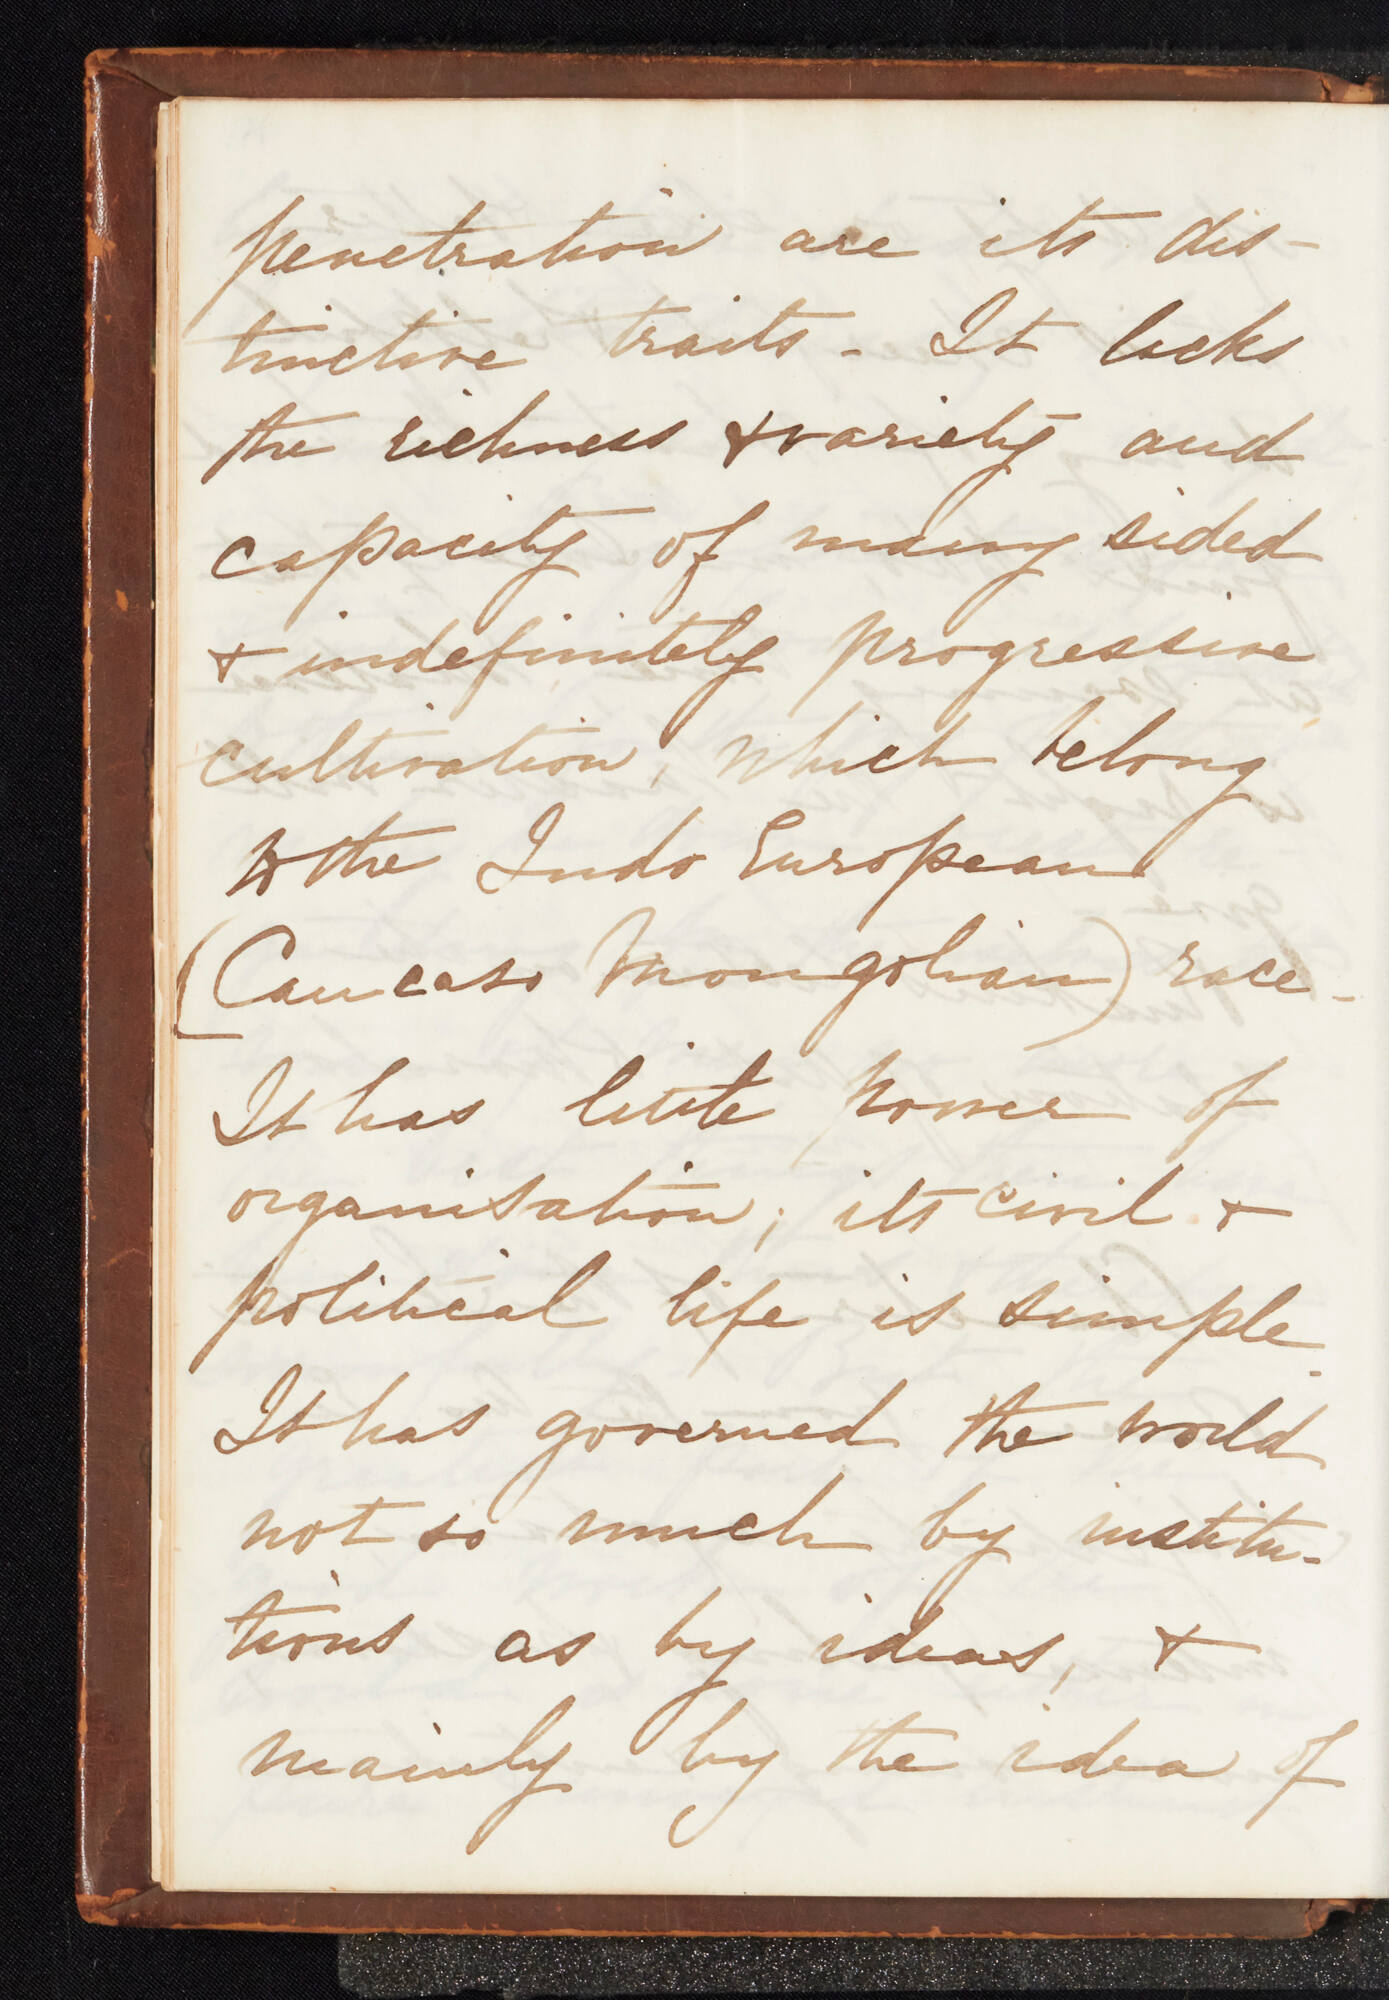 penetration are its dis-
tinctive traits - It lacks
the richness & variety and
capacity of many sided
& indefinitely progressive
cultivation, which belong
to the Indo European
(Caucaso Mongolian) race -
It has little power of
organisation; its civil &
political life is simple.
It has governed the world
not so much by institu-
tions as by ideas, &
mainly by the idea of